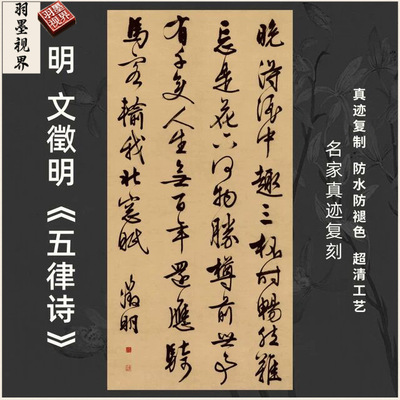 羽墨視界
羽墨視界
明 文徵明《五律诗》
晚得酒中趣三杯时暢然難
忘是花下何物勝樽前世事
有千變人生無百年還應騎
馬客輸我北窗眠
徵明
真迹复制 防水防褪色 超清工艺
名家真迹复刻